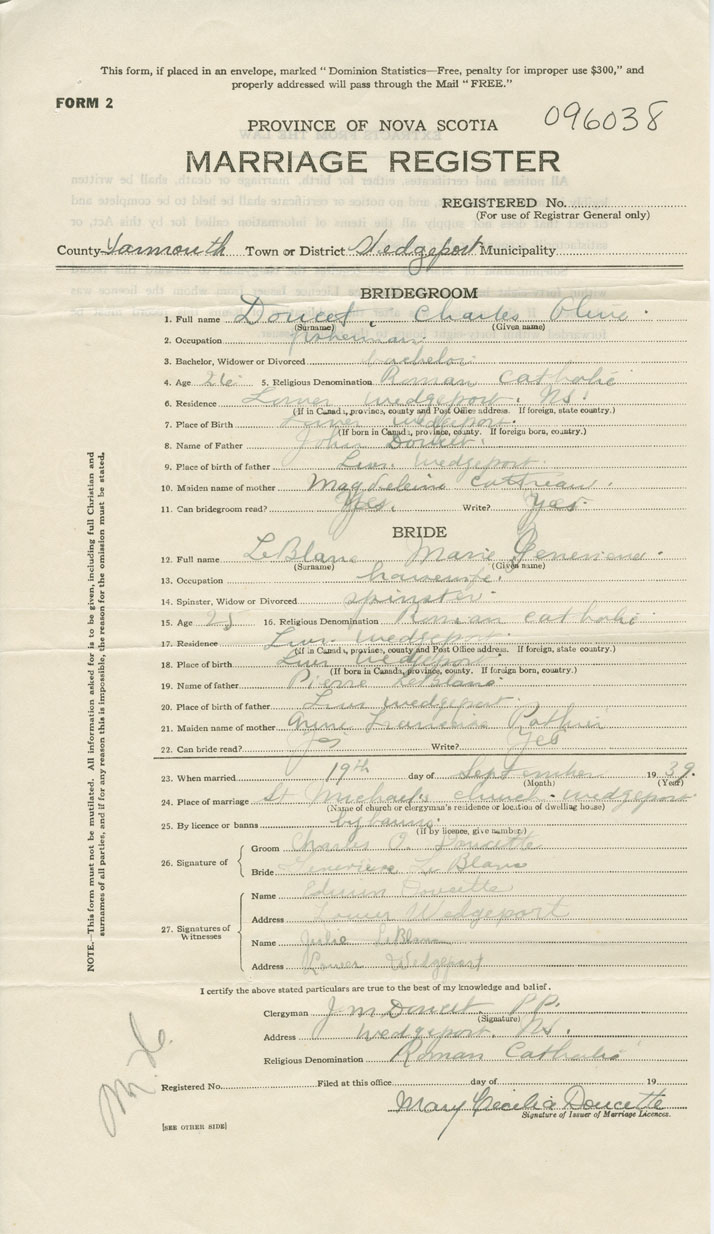 This form, if placed in an envelope, marked "Dominion Statistics—Free, penalty for improper use $300," and
properly addressed will pass through the Mail "FREE."
FORM 2
096038
PROVINCE OF NOVA SCOTIA
MARRIAGE REGISTER
REGISTERED No.
(For use of Registrar General only)
County Yarmouth Town or District Wedgeport Municipality
BRIDEGROOM
1. Full name Doucet Charles
(Surname) (Given name)
2. Occupation fisherman
3. Bachelor, Widower or Divorced bachelor
4. Age 26 5. Religious Denomination Roman Catholic
6. Residence Lower Wedgeport. NS.
(If in Canada, province, county and Post Office address. If foreign, state country.)
7. Place of Birth Lower Wedgeport.
(If born in Canada, province, county. If foreign born, country.)
8. Name of Father John Doucet.
9. Place of birth of father Lwr. Wedgeport.
10. Maiden name of mother Magdeleine Cottreau.
11. Can bridegroom read? Yes. Write? Yes.
BRIDE
12. Full name LeBlanc Marie Genevieve.
(Surname) (Given name)
13. Occupation housewife.
14. Spinster, Widow or Divorced spinster.
15. Age 16. Religious Denomination Roman Catholic
17. Residence Lwr. Wedgeport.
(If in Canada, province, county and Post Office address. If foreign, state country.)
18. Place of birth Lwr Wedgeport.
(If born in Canada, province, county. If foreign born, country.)
19. Name of father Pierre LeBlanc.
20. Place of birth of father Lwr Wedgeport.
21. Maiden name of mother Anne Pothier
22. Can bride read? Yes Write? Yes
23. When married 19th day of September 1939.
(Month) (Year)
24. Place of marriage St Michael's church Wedgeport
(Name of church or clergyman's residence or location of dwelling house)
25. By licence or banns by banns.
(If by licence, give number.)
26. Signature of
Groom Charles O. Doucette
Bride Genevieve LeBlanc
27. Signatures of Witnesses
Name Edwin Doucette
Address Lower Wedgeport
Name Julie LeBlanc
Address Lower Wedgeport
I certify the above stated particulars are true to the best of my knowledge and belief.
Clergyman J M Doucet P.P.
(Signature)
Address Wedgeport. NS.
Religious Denomination Roman Catholic
Registered No. Filed at this office day of 19
Mary Cecilia Doucette
Signature of Issuer of Marriage Licences.
[SEE OTHER SIDE]
NOTE.—This form must not be mutilated. All information asked for is to be given, including full Christian and
surnames of all parties, and if for any reason this is impossible, the reason for the omission must be stated.